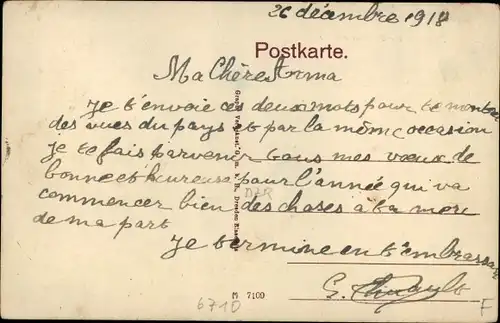 26 décembre 1918
Postkarte.
Ma Chère Irma
Je t'envoie ces deux mots pour te montrer
des vues du pays et par la même occasion
je te fais parvenir tous mes vœux de
bonne et heureuse pour l'année qui va
commencer bien des choses à ta mère
de ma part
Je termine en t'embrassant
G.
7109
6710
F